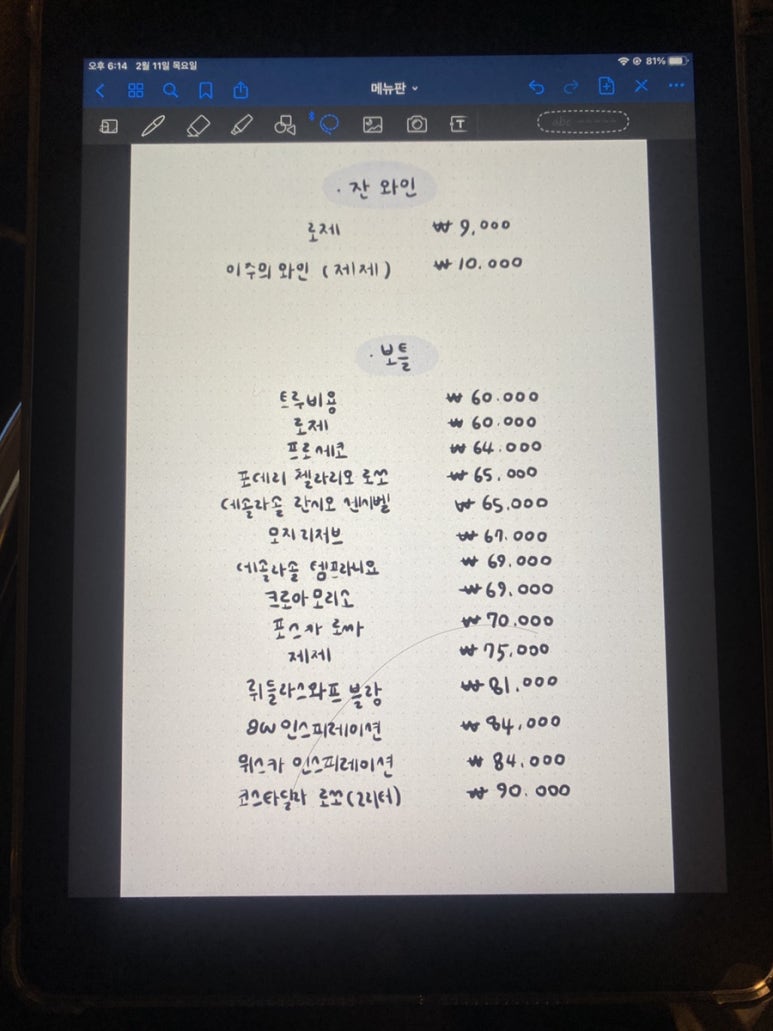 오후 6:14 2월 11일 목요일 81%
메뉴판
abc
· 잔 와인
로제 ₩ 9,000
이주의 와인 (제제) ₩ 10.000
· 보틀
트루비용 ₩ 60.000
로제 ₩ 60.000
프로세코 ₩ 64.000
포데리 첼라리오 로쏘 ₩ 65.000
데솔라솔 란시오 센시벨 ₩ 65,000
오지 리저브 ₩ 67.000
데솔라솔 템프라니요 ₩ 69.000
크로아 모리소 ₩ 69.000
포스카 로싸 ₩ 70.000
제제 ₩ 75.000
뤼들라스와프 블랑 ₩ 81.000
인스피레이션 ₩ 84,000
위스카 인스피레이션 ₩ 84.000
코스타딜라 로쏘(2리터) ₩ 90.000